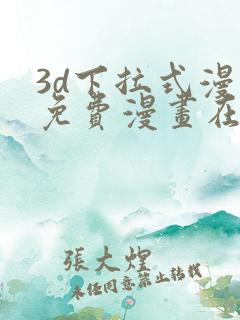 3d下拉式漫
免費漫畫在
張大煌
未經同意禁止轉載